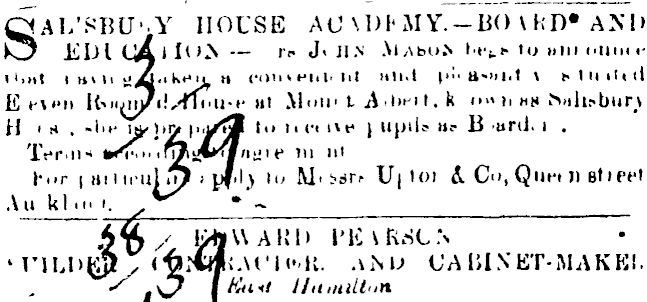 SALISBURY HOUSE ACADEMY.—BOARD AND
EDUCATION — Mrs JOHN MASON begs to announce
that having taken a convenient and pleasantly situated
Eleven Roomed House at Mount Albert, known as Salisbury
House, she is prepared to receive pupils as Boarders.
Terms according to agreement
For particulars apply to Messrs Upton & Co, Queen street
Auckland.
3
39
38
39
EDWARD PEARSON
BUILDER, CONTRACTOR, AND CABINET-MAKER
East Hamilton